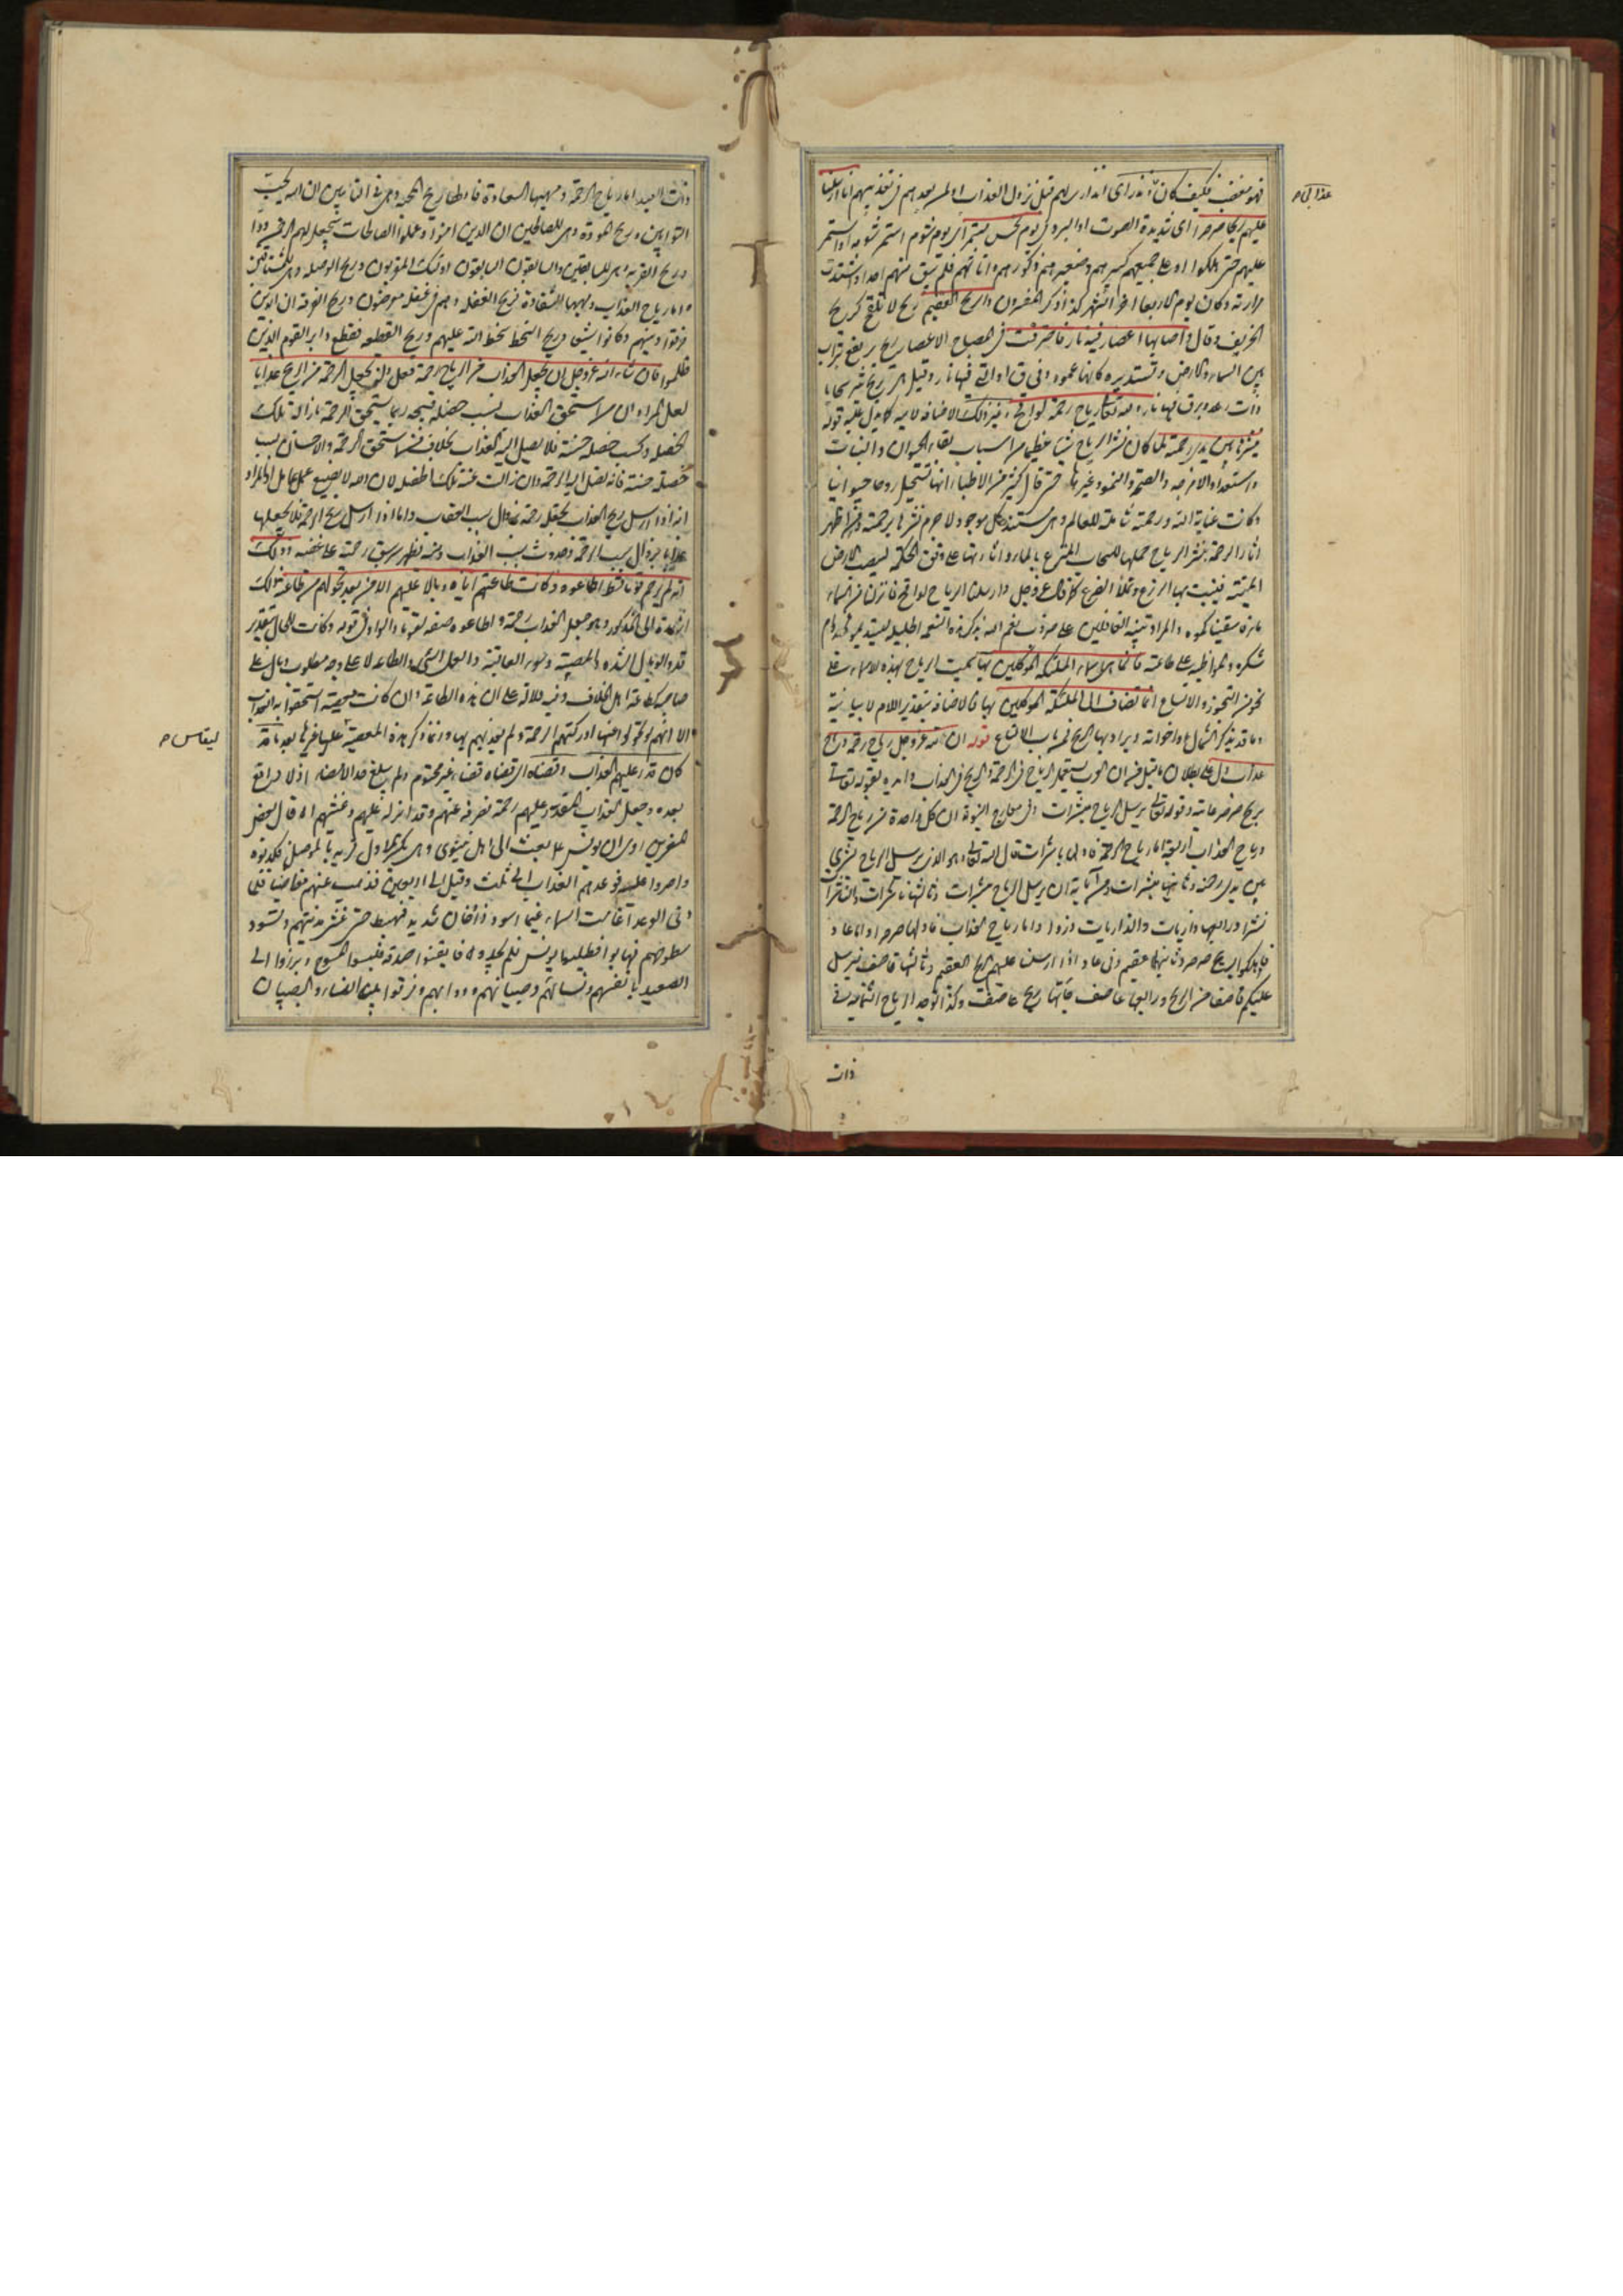 فهو مغضب فكيف كان نذر اى انذارى لهم قبل نزول العذاب او لمن بعدهم فى تعذيبهم انا ارسلنا
عذابى
عليهم ريحا صرصرا اى شديدة الصوت او البرد فى يوم نحس مستمر اى يوم شوم استمر شومه او استمر
عليهم حتى هلكوا او على جميعهم كبيرهم وصغيرهم وذكورهم واناثهم فلم يبق منهم احد او اشتدت
مرارته وكان يوم الاربعا اخر الشهر كذا ذكر المفسرون والريح العقيم ريح لا تلقح كريح
الخريف وقال فاصابها اعصار فيه نار فاحترقت فى المصباح الاعصار ريح يرتفع بتراب
بين السماء والارض وتستدير كانها عمود وقيل هى ريح تثير سحابا
ذات رعد وبرق فيها نار ولله تعالى رياح رحمة لواقح وغير ذلك الاضافة لامية كما يدل عليه قوله
ينشرها بين يدى رحمته لما كان نشر الرياح سببا عظيما من اسباب بقاء الحيوان والنبات
واستعداد الامزجة والصحة والنمو وغيرها حتى قال كثير من الاطباء انها تستحيل روحا حيوانيا
وكانت عناية الله ورحمته شاملة للعالم وهى مستند كل موجود لا جرم نشرها برحمته ومن اظهر
اثار الرحمة بنشر الرياح حملها للسحاب المترع بالماء واثارتها على وفق الحكمة ليصيب الارض
الميتة فينبت بها الزرع ويملأ الضرع كما قال عز وجل وارسلنا الرياح لواقح فانزلنا من السماء
ماء فاسقيناكموه والمراد تنبيه الغافلين على صروف نعم الله بذكر هذه النعمة الجليلة ليستديموها بدوام
شكره والمواظبة على طاعته فانما هى اسماء الملائكة الموكلين بها سميت الرياح بهذه الاسماء على
نحو من التجوز والاتساع انما تضاف الى الملئكة الموكلين بها فالاضافة بتقدير اللام لا بيانية
وما قد يذكر الشمال واخواته ويراد بها الريح فمن باب الاتساع قوله ان لله عز وجل رياح رحمة ورياح
عذاب دل على بطلان ما قيل من ان العرب يستعمل الرياح فى الرحمة والريح فى العذاب وايده بقوله تعالى
بريح صرصر عاتية وقوله تعالى يرسل الرياح مبشرات وفى معارج النبوة ان كل واحدة من رياح الرحمة
ورياح العذاب اربعة اما رياح الرحمة فاولها باشرات قال الله تعالى وهو الذى يرسل الرياح بشرى
بين يدى رحمته وثانيها مبشرات ومن آياته ان يرسل الرياح مبشرات وثالثها ناشرات والناشرات
نشرا ورابعها ذاريات والذاريات ذروا واما رياح العذاب فاولها صرصر واما عاد
فاهلكوا بريح صرصر وثانيها عقيم وفى عاد اذ ارسلنا عليهم الريح العقيم وثالثها قاصف فيرسل
عليكم قاصفا من الريح ورابعها عاصف جاءتها ريح عاصف وكذا توجد الرياح الثمانية فى
ذات
ذات العبد اما رياح الرحمة ومهبها السعادة فاولها ريح المحبة وهى فى التائبين ان الله يحب
التوابين وريح المودة وهى للصالحين ان الذين امنوا وعملوا الصالحات سيجعل لهم الرحمن ودا
وريح القربة وهى للسابقين والسابقون السابقون اولئك المقربون وريح الوصلة وهى للمشتاقين
واما رياح العذاب ومهبها الشقاوة فريح الغفلة وهم فى غفلة معرضون وريح الفرقة ان الذين
فرقوا دينهم وكانوا شيعا وريح السخط سخط الله عليهم وريح القطيعة فقطع دابر القوم الذين
ظلموا فان شاء الله عز وجل ان يجعل العذاب من الرياح رحمة فعل ولن يجعل الرحمة من الريح عذابا
لعل المراد ان من استحق العذاب بسبب خصلة قبيحة ربما يستحق الرحمة بازالة تلك
الخصلة وكسب خصلة حسنة فلا يصل اليه العذاب بخلاف من استحق الرحمة والاحسان بسبب
خصلة حسنة فانه تصل اليه الرحمة وان زالت عنه تلك الخصلة لان الله لا يضيع عمل عامل او المراد
انه اذا ارسل ريح العذاب يجعل رحمة بزوال سبب العقاب واما اذا ارسل ريح الرحمة فلا يجعلها
عذابا بزوال سبب الرحمة وحدوث سبب العذاب ومنه يظهر سبق رحمته على غضبه وذلك
انه لم يرحم قوما قط اطاعوه وكانت طاعتهم اياه وبالا عليهم الا من بعد تحولهم من طاعته ذلك
اشارة الى المذكور وهو جعل العذاب رحمة واطاعوه صفة لقوما والواو فى قوله وكانت للحال بتقدير
قد والوبال الشدة والمصيبة وسوء العاقبة والعمل السئ والطاعة لا على وجه مطلوب وبال على
صاحبه كطاعة اهل الخلاف وفيه دلالة على ان هذه الطاعة وان كانت معصية استحقوا بها العذاب
الا انهم لو تحولوا عنها ادركتهم الرحمة ولم يعذبهم بها وانما ذكر هذه المعصية ليقاس عليها غيرها بعد ما قد
ليقاس
كان قدر عليهم العذاب وقضاه اى قضاه قضاء غير محتوم ولم يبلغ حد الامضاء اذ لا دافع
بعده وجعل العذاب المقدر عليهم رحمة بصرفه عنهم وقد انزله عليهم وغشيهم اه قال بعض
المفسرين روى ان يونس ع بعث الى اهل نينوى وهى بكسر الاول قرية بالموصل فكذبوه
واصروا عليه فوعدهم العذاب الى ثلث وقيل الى اربعين فذهب عنهم مغاضبا فلما
دنى الوعد اغامت السماء غيما اسود ذا دخان شديد فهبط حتى غشى مدينتهم وتسود
سطوحهم فهابوا فطلبوا يونس فلم يجدوه فايقنوا صدقه فلبسوا المسوح وبرزوا الى
الصعيد بانفسهم ونسائهم وصبيانهم ودوابهم وفرقوا بين النساء والصبيان